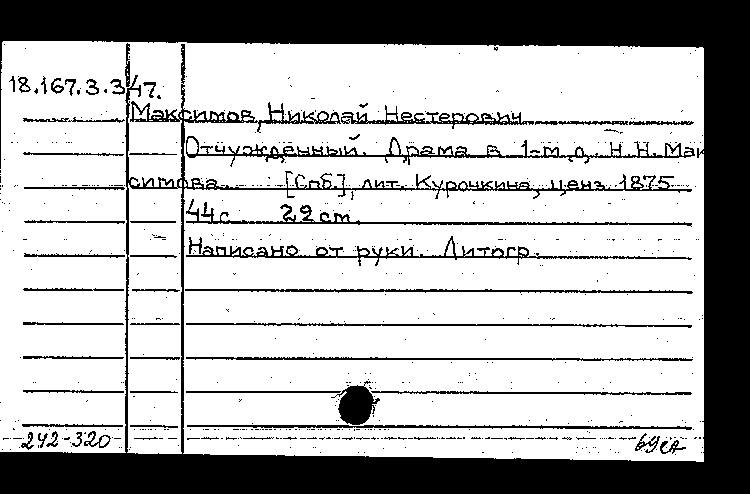 18.167.3.347.
Максимов, Николай Нестерович
Отчужденный. Драма в 1-м д. Н.Н. Мак
симова. [Спб.], лит. Курочкина, ценз. 1875.
44 с. 22 cm.
Написано от руки. Литогр.
242-320